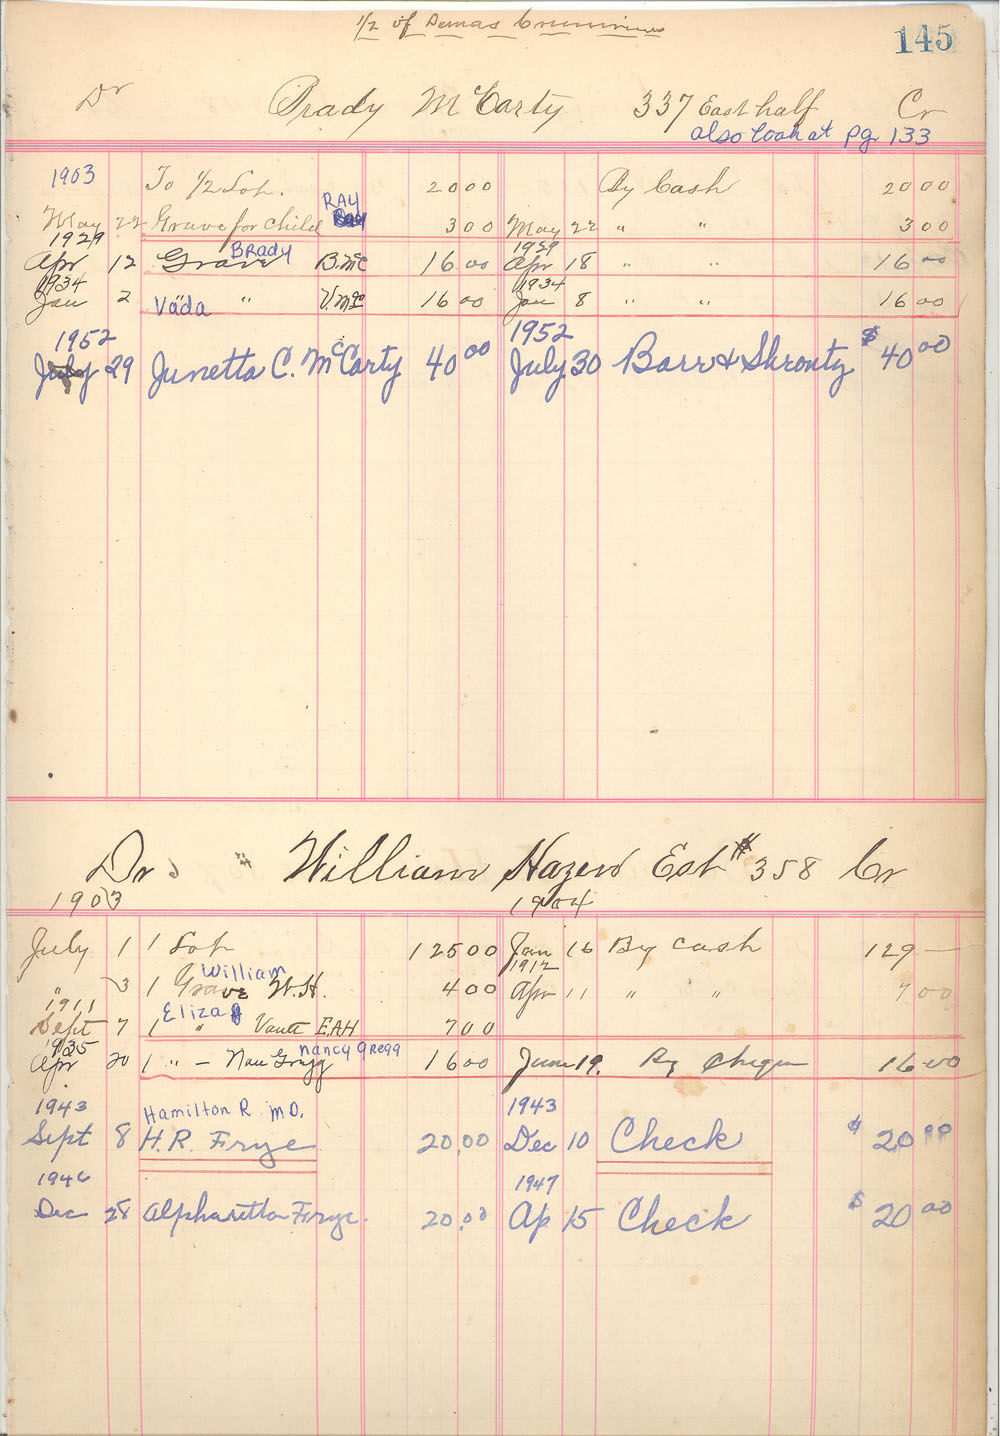 1/2 of Demas
145
Dr Brady McCarty 337 East half Cr
also look at pg. 133
1903 To 1/2 Lot. 20 00 By Cash 20 00
RAY
May 22 Grave for child 3 00 May 22 " " 3 00
1929 Brady 1929
Apr 12 Grave B.Mc 16 00 Apr 18 " " 16 00
1934 1934
Jan 2 Vada " V.Mc 16 00 Jan 8 " " 16 00
1952 1952
July 29 Junetta C. McCarty 40 00 July 30 Barr & Shrouty $ 40 00
Dr William Hazen Est # 358 Cr
1903 1904
July 1 1 Lot 125 00 Jan 16 By cash 129 —
William 1912
" 3 1 Grave W.H. 4 00 Apr 11 " " 7 00
1911 Eliza
Sept 7 1 " Vault EAH 7 00
1935 Nancy Gregg
Apr 20 1 " – Gregg 16 00 June 19. By 16 00
1943 Hamilton R M.D. 1943
Sept 8 H.R. Frye 20.00 Dec 10 Check $ 20 00
1946 1947
Dec 28 Alpharetta Frye. 20.00 Ap 15 Check $ 20 00